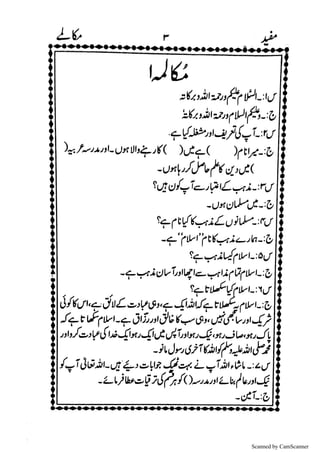 مفید ۳ مکالمے
مُکالمہ ا
س۱:۔ السلام علیکم ورحمۃ اللہ وبرکاتہ
ج:۔ وعلیکم السلام ورحمۃ اللہ وبرکاتہٗ
س۲:۔ آپ کی تعریف اور مشغلہ کیا ہے۔
ج:۔ میرا نام ( ) ہے میں ( ) کا رہنے والا ہوں۔ اور مدرسہ عربیہ (
) میں دین کا علم حاصل کر رہا ہوں۔
س۳:۔ مذہب کے اعتبار سے آپ کون ہیں؟
ج:۔ میں مسلمان ہوں۔
س۴:۔ مسلمانوں کے مذہب کا کیا نام ہے؟
ج:۔ ہمارے مذہب کا نام ”اسلام“ ہے۔
س۵:۔ اسلام کیسا مذہب ہے؟
ج:۔ اسلام تمام مذاہب سے اچھا اور آسان مذہب ہے۔
س۶:۔ اسلام کیا سکھلاتا ہے؟
ج:۔ اسلام یہ سکھلاتا ہے کہ اللہ ایک ہے، وہی عبادت کے لائق ہے، اس کا کوئی
شریک اور ساجھی نہیں، وہی سب کا خالق اور رزاق ہے۔ اسلام سکھاتا ہے کہ
پاک رہو، صاف رہو، نیک رہو اور آپس میں ایک رہو ایک خدا کی عبادت کرو اور
محمد صلی اللہ علیہ وسلم کو اللہ کا آخری رسول مانو۔
س۷:۔ ماشاء اللہ آپ نے بہت ٹھیک جوابات دیئے ہیں۔ اللہ تعالیٰ آپ کو
نیک اور عالم بنائے اور مدرسہ ( ) کو ہر قسم کی ترقیات عطا فرمائے۔
ج:۔ آمین۔
Scanned by CamScanner